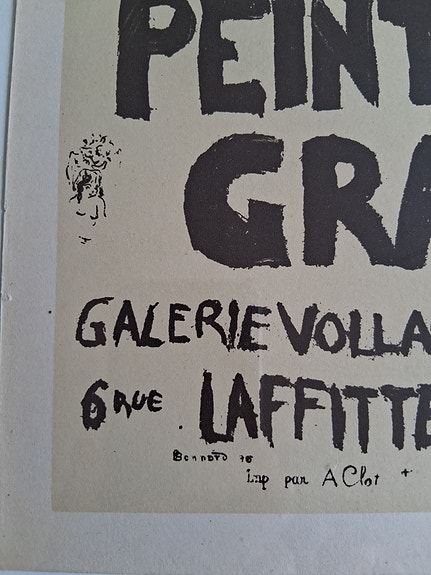 PEINT
GRA
GALERIE VOLLA
6 RUE LAFFITTE
Bonnard 96
Imp par A Clot